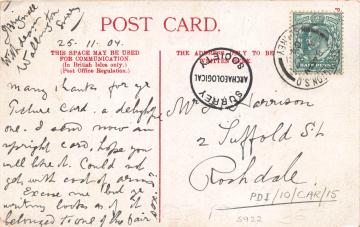 POST CARD.
25-11-04.
THIS SPACE MAY BE USED
FOR COMMUNICATION.
(In British Isles only.)
(Post Office Regulation.)
THE ADDRESS ONLY TO BE
WRITTEN
Wallington
Surrey
Many thanks for yr
Picture Card. a
one. I send now an
upright card, hope you
will like it. Could not
get with coat of arms.
Excuse
writing looks as if it
belonged to one of the fair sex.
SURREY
ARCHAEOLOGICAL
SOCIETY
HALFPENNY
Mr Harrison
2 Suffold St
Rochdale
PDI/10/CAR/15
5922